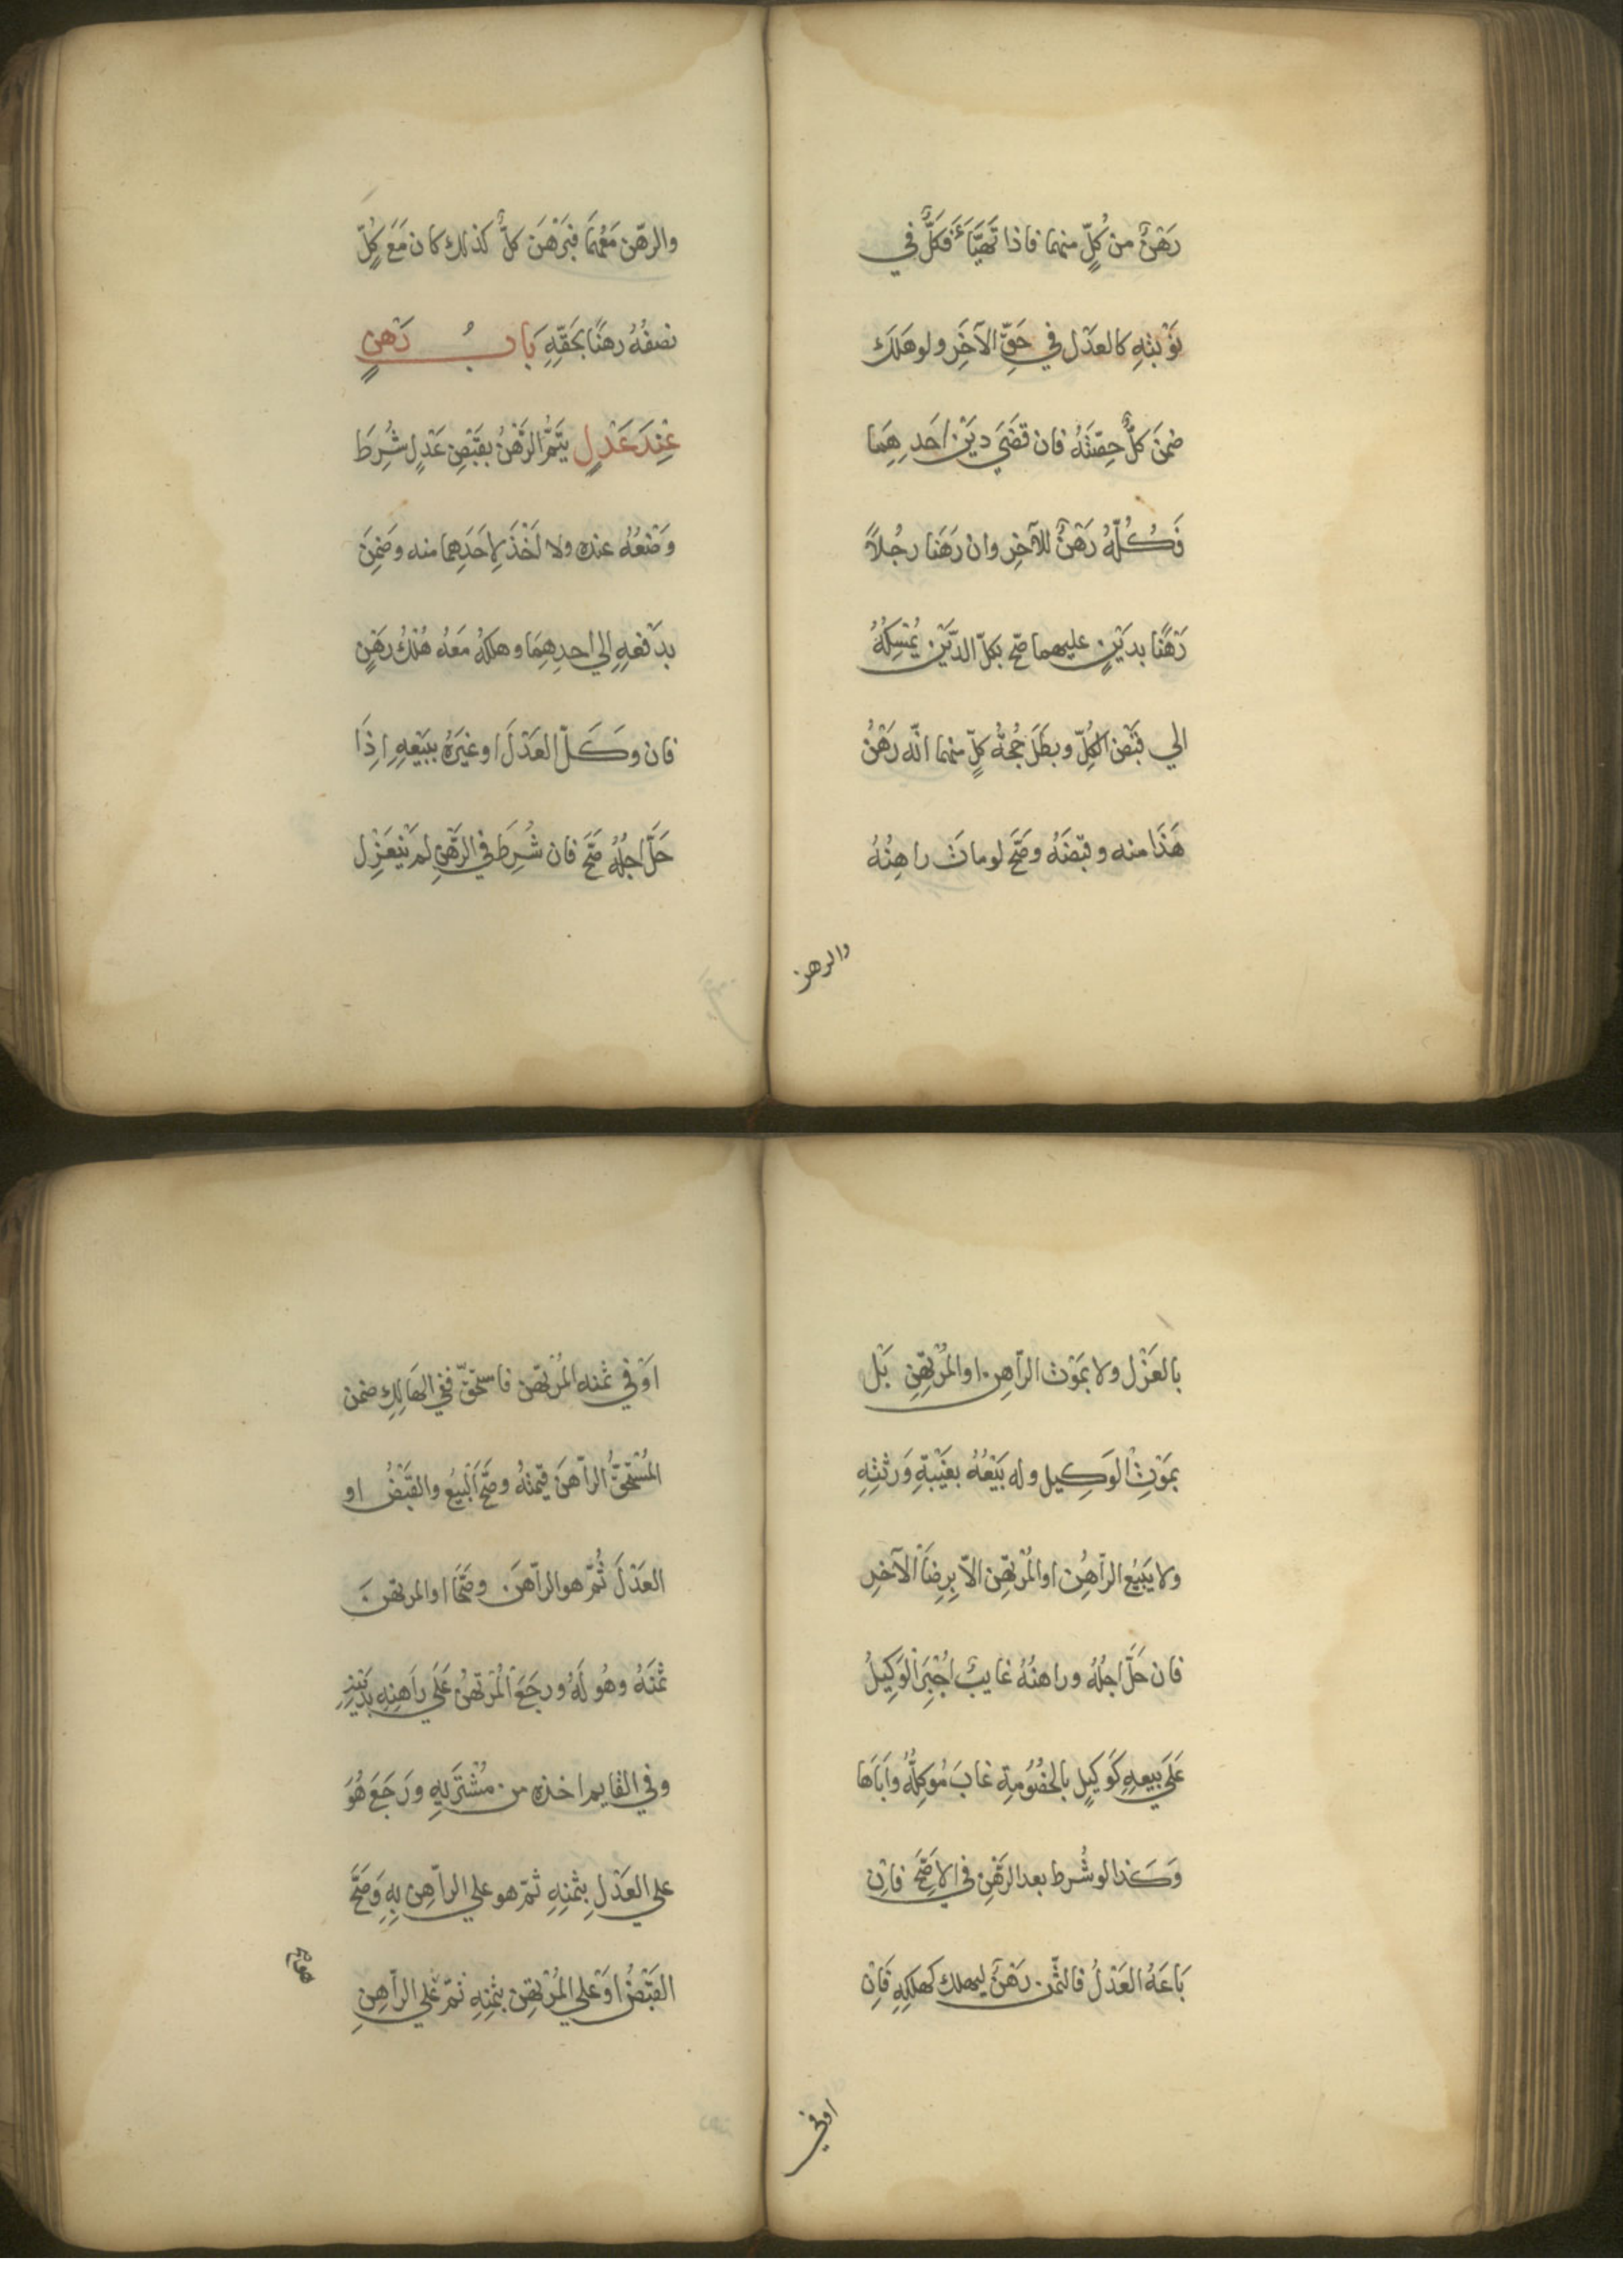 رَهْنٌ من كُلٍّ منهما فاذا تَهيَّاءَ فكلٌّ في
نَوْبتِهِ كالعدْل في حَقِّ الآخَرِ ولو هَلَكَ
ضمنَ كلٌّ حِصّتَهُ فان قضَي ديْن احَدِهِمَا
فَكُلُّهُ رَهْنٌ للآخِرِ وان رَهَنا رجُلاً
رَهْنًا بديْنٍ عليهما صحّ بكلّ الدّيْن يُمْسِكُهُ
الي قَبْض الكُلِّ وبطَلَ حُجةُ كلٍّ منهما انّه رَهْنُ
هَذَا منه وقبضَهُ وصَحَّ لو ماتَ راهِنُهُ
والرهن
والرهْن مَعْهُمَا فبَرْهَنَ كلٌّ كذلك كان مَعَ كُلٍّ
نصفُهُ رهنًا بحَقِّهِ بَابُ رَهنٍ
عِنْدَ عَدْلٍ يَتِمُّ الرَّهْنُ بقَبْضِ عَدْلٍ شُرِطَ
وَضْعُهُ عنده ولا اَخْذَ لِاحَدِهِما منه وضَمِنَ
بدَفْعِهِ الي احدِهِمَا وهلكهُ مَعَهُ هُلْكُ رَهْنٍ
فان وكّلَ العَدْلَ او غيْرَهُ ببَيْعِهِ اِذَا
حَلَّ اجلُهُ صَحَّ فان شُرِطَ في الرَّهْنِ لم يَنْعَزِل
بالعَزْل ولا بمَوْت الرّاهِن او المُرْتهِنِ بَلْ
بمَوْتِ الوَكِيل وله بَيْعُهُ بغَيْبةِ وَرَثتِهِ
ولا يَبيْعُ الرّاهِن او المُرْتهِن الاّ برِضَا الآخرِ
فان حَلَّ اجلُهُ وراهنُهُ غايبٌ اُجْبِرَ الوَكِيْلُ
عَلَي بَيعِهِ كَوَكِيلٍ بالخُصُومةِ غابَ مُوكِلُهُ وابَاهَا
وَكَذا لو شُرط بعد الرّهْن في الاصَحِّ فان
بَاعَهُ العَدْلُ فالثّمن رَهْنٌ ليهلك كهلكِهِ فَاِن
اوفي
اَوْفي ثمنه المُرْتهن فاستحقّ ففي الهَالِك ضمن
المُسْتحِقُّ الرّاهنَ قيْمتَهُ وصَحَّ البَيْعُ والقَبْضُ او
العَدْلَ ثُمّ هو الرّاهِنَ وصَحَّا او المرتهنَ
ثمَنَهُ وهُو لَهُ ورجَعَ المُرْتهنُ عَلَي رَاهِنِهِ بدَيْنِهِ
وفي القايم اخذه من مُشْتَرِيهِ ورَجَعَ هُوَ
علي العَدْلِ بثمنِهِ ثمّ هو علي الرّاهِن بِهِ وَصَحَّ
القبْضُ اوَ علي المُرْتهِن بثمنِهِ ثمّ علي الرّاهِنِ